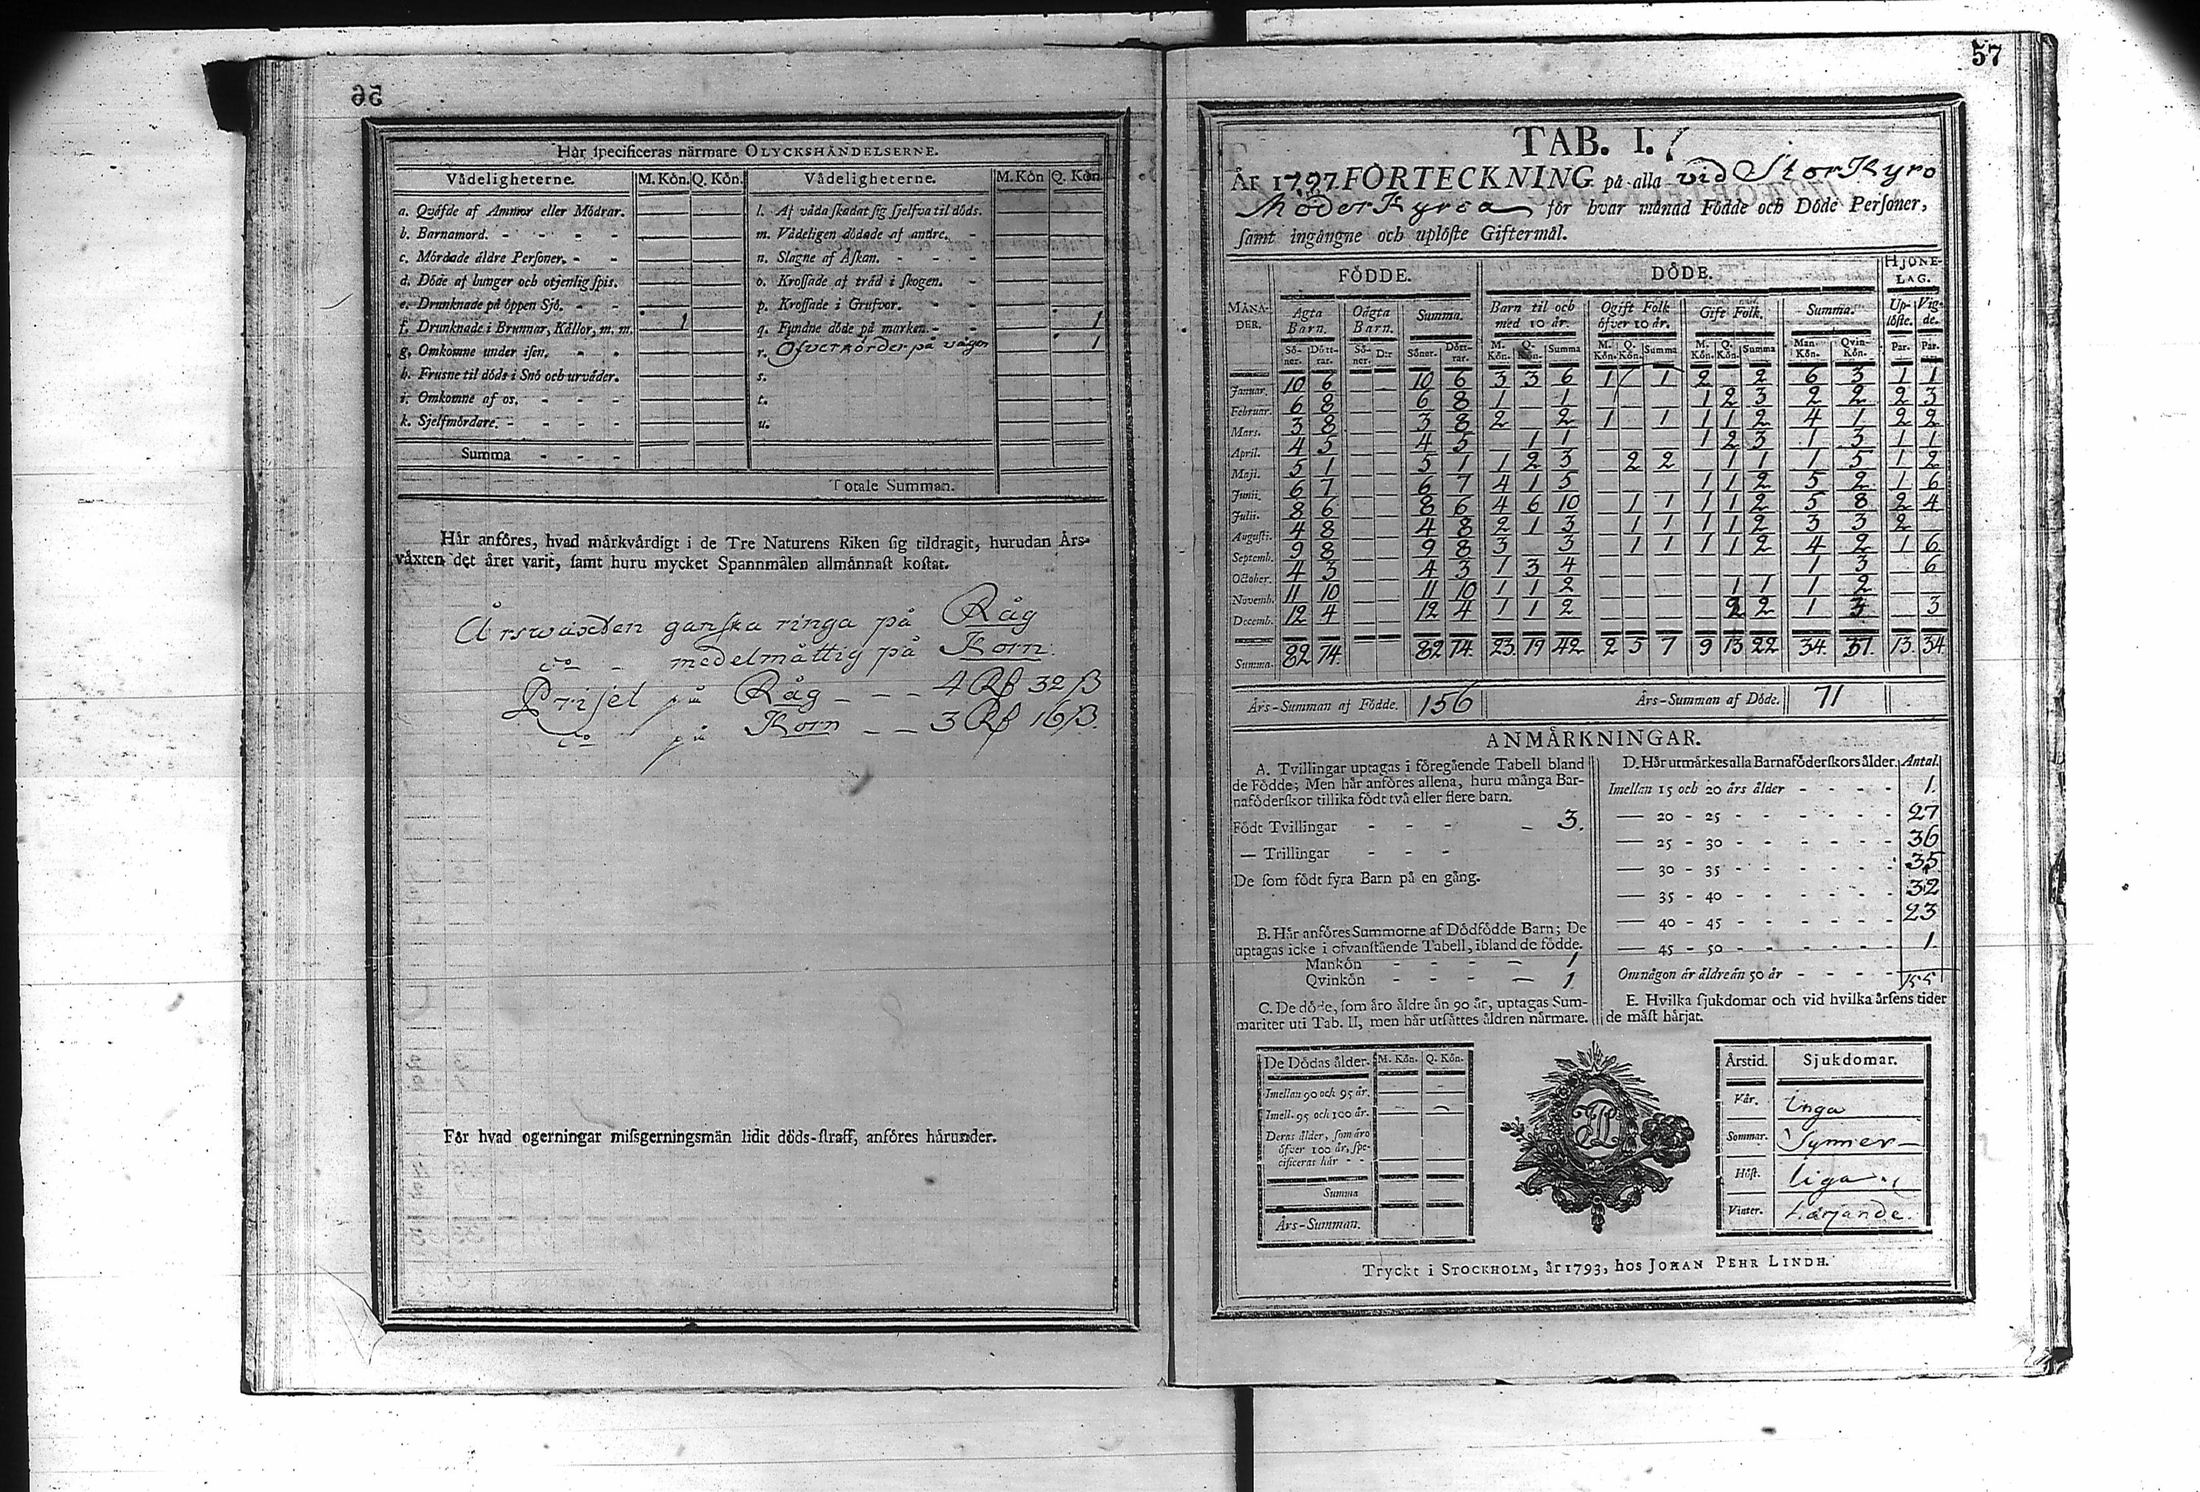 56
Hår specificeras nårmare OLYCKSHÅNDELSERNE.
Vådeligheterne. M. Kôn. Q. Kôn. Vådeligheterne. M. Kôn Q. Kôn.
a. Qvåfde af Ammor eller Môdrar. l. Af våda skadat sig sjelfva til dôds.
b. Barnamord. - - - - m. Vådeligen dôdade af andre. -
c. Môrdade åldre Personer. - - n. Slagne af Åskan. - - -
d. Dôde af hunger och otjenlig spis. o. Krossade af tråd i skogen. -
e. Drunknade på ôppen Sjô. - - p. Krossade i Grufvor. - -
f. Drunknade i Brunnar, Kållor, m. m. 1 q. Fundne dôde på marken. - - 1
g. Omkomne under isen. - - r. Ofverkörder på vägen 1
h. Frusne til dôds i Snô och urvåder. s.
i. Omkomne af os. - - - t.
k. Sjelfmôrdare. - - - - u.
Summa - - -
Totale Summan.
Hår anfôres, hvad mårkvårdigt i de Tre Naturens Riken sig tildragit, hurudan Års-
våxten det året varit, samt huru mycket Spannmålen allmånnast kostat.
Årswäxten ganska ringa på Råg
do - medelmåttig på Korn.
Priset på Råg - - - 4 Rß 32 ß
do på Korn - - 3 Rß 16 ß.
Fôr hvad ogerningar missgerningsmån lidit dôds-straff, anfôres hårunder.
57
TAB. I.
År 1797. FÔRTECKNING på alla vid StorKyro
ModerKyrca fôr hvar månad Fôdde och Dôde Personer,
samt ingångne och uplôste Giftermål.
MÅNADER. FÔDDE. DÔDE. HJONELAG.
Ågta Barn. Oågta Barn. Summa. Barn til och med 10 år. Ogift Folk ôfver 10 år. Gift Folk. Summa. Uplôste. Vigde.
Sôner. Dôttrar. Sôner. D:r Sôner. Dôttrar. M. Kôn. Q. Kôn. Summa M. Kôn. Q. Kôn. Summa M. Kôn. Q. Kôn. Summa Man Kôn. Qvin-Kôn. Par. Par.
Januar. 10 6 — — 10 6 3 3 6 1 1 2 2 6 3 1 1
Februar. 6 8 — — 6 8 1 — 1 — — — 1 2 3 2 2 2 3
Mars. 3 8 — — 3 8 2 — 2 1 — 1 1 1 2 4 1 2 2
April. 4 5 — — 4 5 — 1 1 — — — 1 2 3 1 3 1 1
Maji. 5 1 — — 5 1 1 2 3 — 2 2 — 1 1 1 5 1 2
Junii. 6 7 — — 6 7 4 1 5 — — — 1 1 2 5 2 1 6
Julii. 8 6 — — 8 6 4 6 10 — 1 1 1 1 2 5 8 2 4
Augusti. 4 8 — — 4 8 2 1 3 — 1 1 1 1 2 3 3 2 —
Septemb. 9 8 — — 9 8 3 — 3 — 1 1 1 1 2 4 2 1 6
October. 4 3 — — 4 3 1 3 4 — — — — — — 1 3 — 6
Novemb. 11 10 — — 11 10 1 1 2 — — — — 1 1 1 2 — —
Decemb. 12 4 — — 12 4 1 1 2 — — — — 2 2 1 3 — 3
Summa. 82 74. 82 74. 23. 19 42 2 5 7 9 13 22 34. 37. 13. 34
Års-Summan af Fôdde. 156 Års-Summan af Dôde. 71
ANMÅRKNINGAR.
A. Tvillingar uptagas i fôregående Tabell bland
de Fôdde; Men hår anfôres allena, huru många Bar-
nafôderskor tillika fôdt två eller flere barn.
Fôdt Tvillingar - - - - 3.
— Trillingar - - -
De som fôdt fyra Barn på en gång.
B. Hår anfôres Summorne af Dôdfôdde Barn; De
uptagas icke i ofvanstående Tabell, ibland de fôdde.
Mankôn - - - - 1
Qvinkôn - - - - 1.
C. De dôde, som åro åldre ån 90 år, uptagas Sum-
mariter uti Tab. II, men hår utsåttes åldren nårmare.
D. Hår utmårkes alla Barnafôderskors ålder. Antal.
Imellan 15 och 20 års ålder - - - - 1.
— 20 - 25 - - - - - - 27
— 25 - 30 - - - - - - 36
— 30 - 35 - - - - - - 35
— 35 - 40 - - - - - - 32
— 40 - 45 - - - - - - 23
— 45 - 50 - - - - - - 1
Om någon år åldre ån 50 år - - - -
155
E. Hvilka sjukdomar och vid hvilka årsens tider
de måst hårjat.
De Dôdas ålder. M. Kôn. Q. Kôn.
Imellan 90 och 95 år.
Imell. 95 och 100 år.
Deras ålder, som åro
ôfver 100 år, spe-
cificeras hår - -
Summa
Års-Summan.
Årstid. Sjukdomar.
Vår. Inga
Sommar. Synner-
Hôst. liga
Vinter. härjande.
Tryckt i STOCKHOLM, år 1793, hos JOHAN PEHR LINDH.